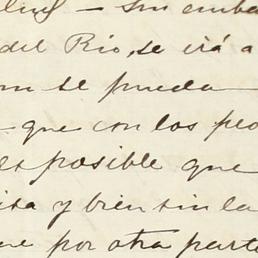 — sin emba
del Río, se irá a
se pueda
— que con los peo
es posible que
y bien sin la
por otra parte